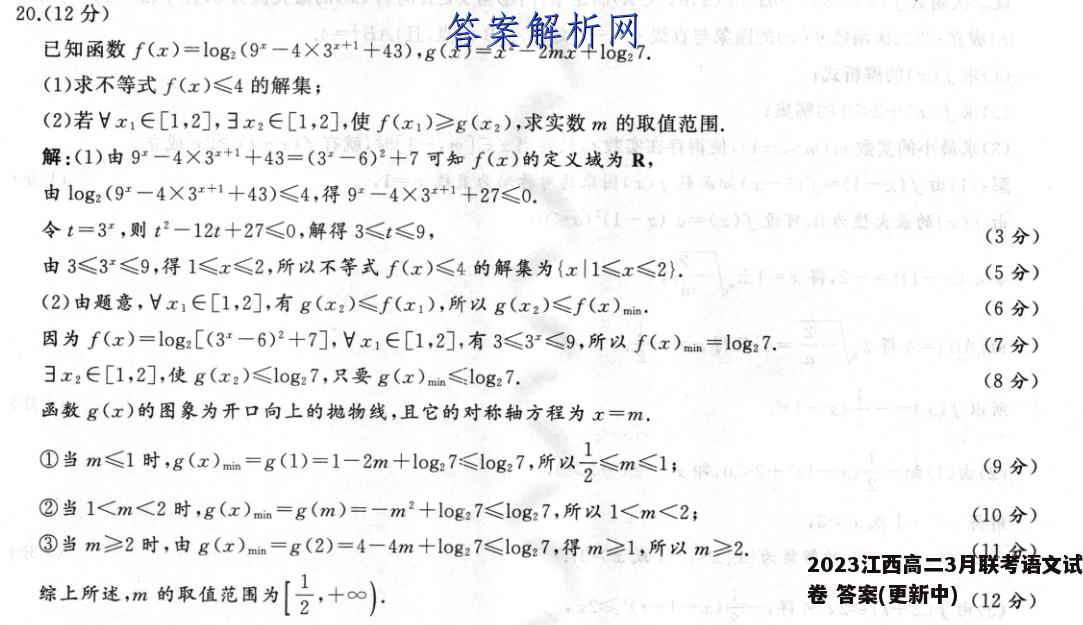 20.(12分)
答案解析网
已知函数 f(x)=log₂(9ˣ-4×3ˣ⁺¹+43),g(x)=x²-2mx+log₂7.
(1)求不等式 f(x)≤4 的解集;
(2)若∀x₁∈[1,2],∃x₂∈[1,2],使 f(x₁)≥g(x₂),求实数 m 的取值范围.
解:(1)由 9ˣ-4×3ˣ⁺¹+43=(3ˣ-6)²+7 可知 f(x)的定义域为 R,
由 log₂(9ˣ-4×3ˣ⁺¹+43)≤4,得 9ˣ-4×3ˣ⁺¹+27≤0.
令 t=3ˣ,则 t²-12t+27≤0,解得 3≤t≤9, (3分)
由 3≤3ˣ≤9,得 1≤x≤2,所以不等式 f(x)≤4 的解集为{x|1≤x≤2}. (5分)
(2)由题意,∀x₁∈[1,2],有 g(x₂)≤f(x₁),所以 g(x₂)≤f(x)min. (6分)
因为 f(x)=log₂[(3ˣ-6)²+7],∀x₁∈[1,2],有 3≤3ˣ≤9,所以 f(x)min=log₂7. (7分)
∃x₂∈[1,2],使 g(x₂)≤log₂7,只要 g(x)min≤log₂7. (8分)
函数 g(x)的图象为开口向上的抛物线,且它的对称轴方程为 x=m.
①当 m≤1 时,g(x)min=g(1)=1-2m+log₂7≤log₂7,所以 1/2≤m≤1; (9分)
②当 1<m<2 时,g(x)min=g(m)=-m²+log₂7≤log₂7,所以 1<m<2; (10分)
③当 m≥2 时,由 g(x)min=g(2)=4-4m+log₂7≤log₂7,得 m≥1,所以 m≥2. (11分)
综上所述,m 的取值范围为[1/2,+∞). (12分)
2023江西高二3月联考语文试
卷 答案(更新中)